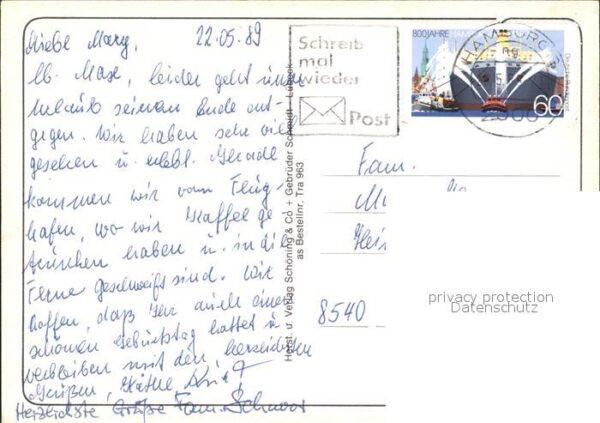 Liebe Mary, 22.05.89
lb. Max, leider geht unser
Urlaub seinem Ende ent-
gegen. Wir haben sehr viel
gesehen u. erlebt. Gerade
kommen wir vom Flug-
hafen, wo wir Kaffee ge
trunken haben u. in die
Ferne geschweift sind. Wir
hoffen, daß Ihr auch einen
schönen Geburtstag hattet u
verbleiben mit den herzlichsten
Grüßen, Käthe
Herzlichste Grüße Fam. Schnoor
Schreib
mal
wieder
Post
800 JAHRE
HAMBURG
2000
60
Deutsche Bundespost
Herst. u. Verlag Schöning & Co + Gebrüder Schmidt - Lübeck
as Bestellnr. Tra 963
Fam.
8540
privacy protection
Datenschutz